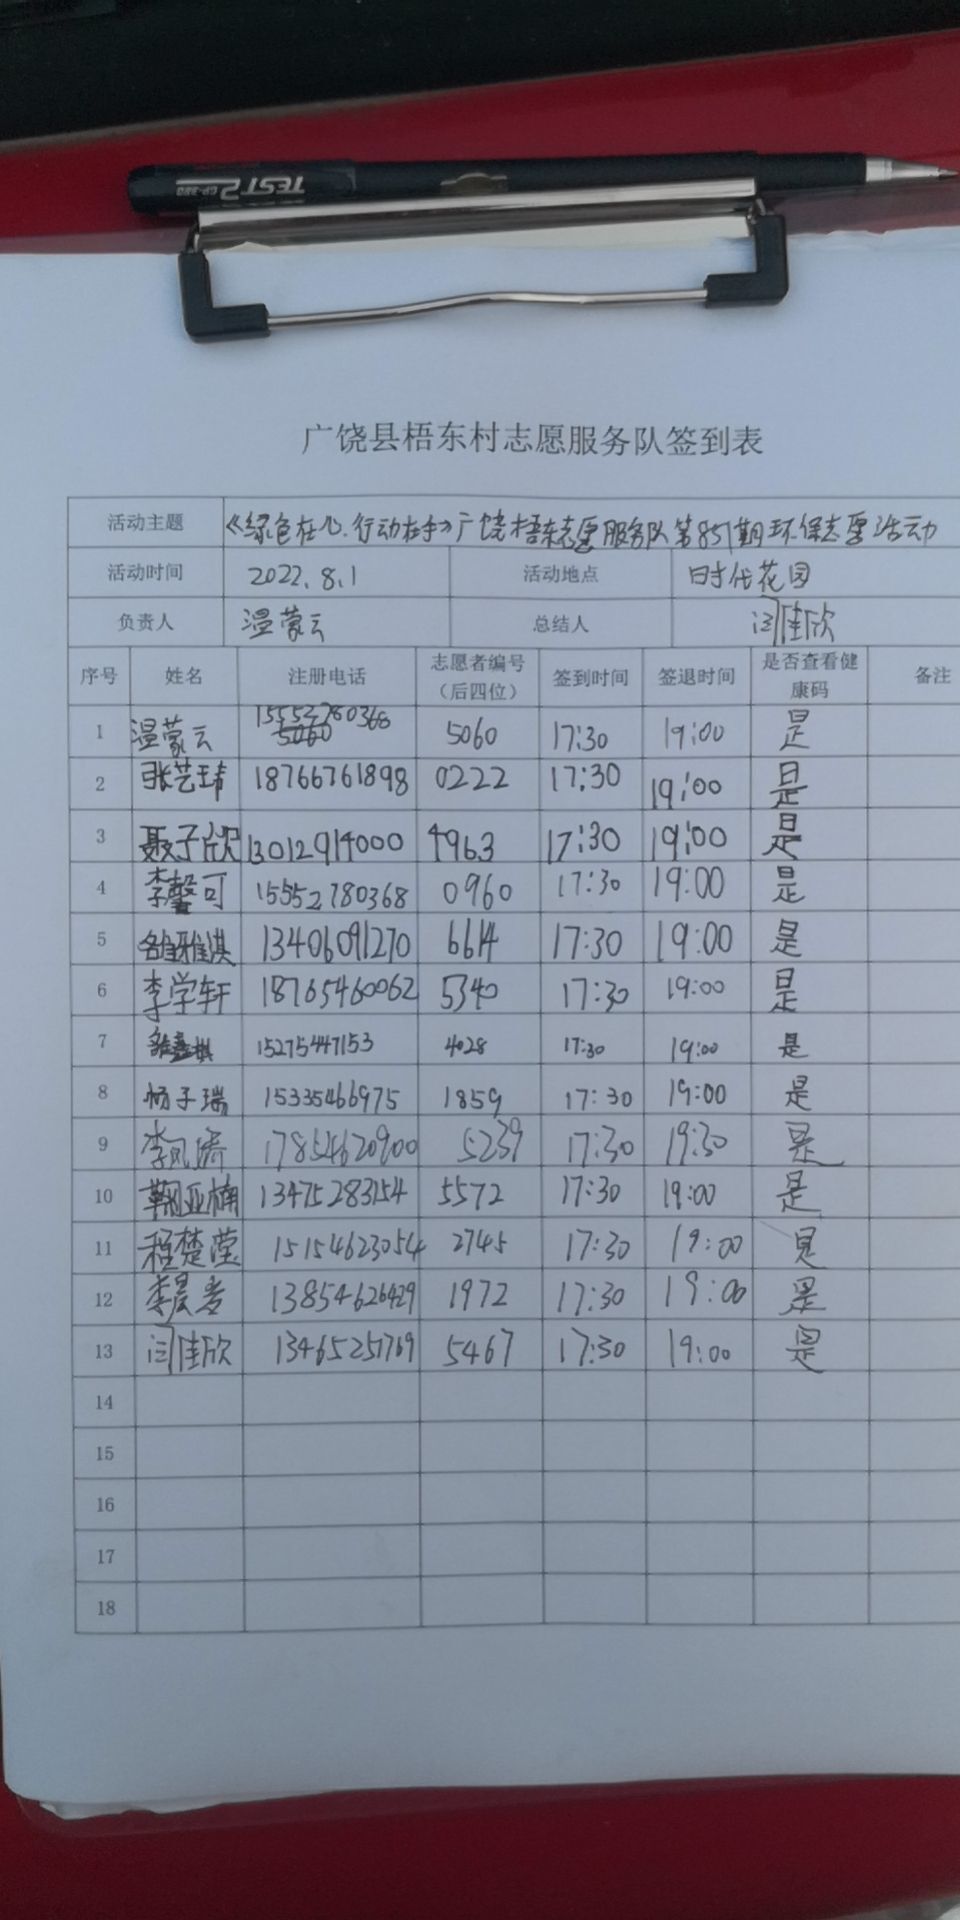 TEST 2
广饶县梧东村志愿服务队签到表
活动主题 《绿色在心.行动在手》广饶梧东志愿服务队第857期环保志愿活动
活动时间 2022.8.1 活动地点 时代花园
负责人 温蒙云 总结人 闫佳欣
序号 姓名 注册电话 志愿者编号（后四位） 签到时间 签退时间 是否查看健康码 备注
1 温蒙云 15552780368 5060 17:30 19:00 是
2 张艺玮 18766761898 0222 17:30 19:00 是
3 聂子欣 13012914000 4963 17:30 19:00 是
4 李馨可 15552780368 0960 17:30 19:00 是
5 13406091270 6614 17:30 19:00 是
6 李学轩 18765460062 5340 17:30 19:00 是
7 15275447153 4028 17:30 19:00 是
8 杨子瑞 15335466975 1859 17:30 19:00 是
9 17854620900 5239 17:30 19:30 是
10 鞠亚楠 13475283154 5572 17:30 19:00 是
11 程楚滢 15154623054 2745 17:30 19:00 是
12 13854626429 1972 17:30 19:00 是
13 闫佳欣 13465251769 5467 17:30 19:00 是
14
15
16
17
18